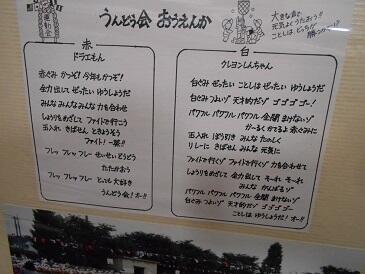 運動会
うんどう会 おうえんか
大きな声で
元気よくうたおう!!
ことしは どっちが
勝つかな!?
赤
ドラえもん
赤ぐみ かつぞ! 今年もかつぞ!
全力 出して ぜったい ゆうしょうだ
みんな みんな みんな 力を合わせ
しょうりをめざして ファイトで行こう
玉入れ きばせん ときょうそう
ファイト! 一発!!
フレッ フレッ フレー せいせい どうどう
たたかおう
フレッ フレッ フレー とっても 大好き
うんどう会! オー!!
白
クレヨンしんちゃん
白ぐみ ぜったい ことしは ぜったい ゆうしょうだ
白ぐみ つよいゾ 天才的だゾ ゴゴゴゴー!
パワフル パワフル パワフル 全開 まけないゾ
かーるく かてるよ 赤ぐみに
玉入れ ぼう引き みんな たのしく
リレーに きばせん みんな 元気に
ファイトで行くゾ ファイトで行くゾ 力を合わせて
しょうりをめざして 全力 出して そーれ そーれ
みんな がんばるゾ
パワフル パワフル パワフル 全開 まけないゾ
白ぐみ つよいゾ 天才的だゾ ゴゴゴゴー
ことしは ゆうしょうだ! オー!!